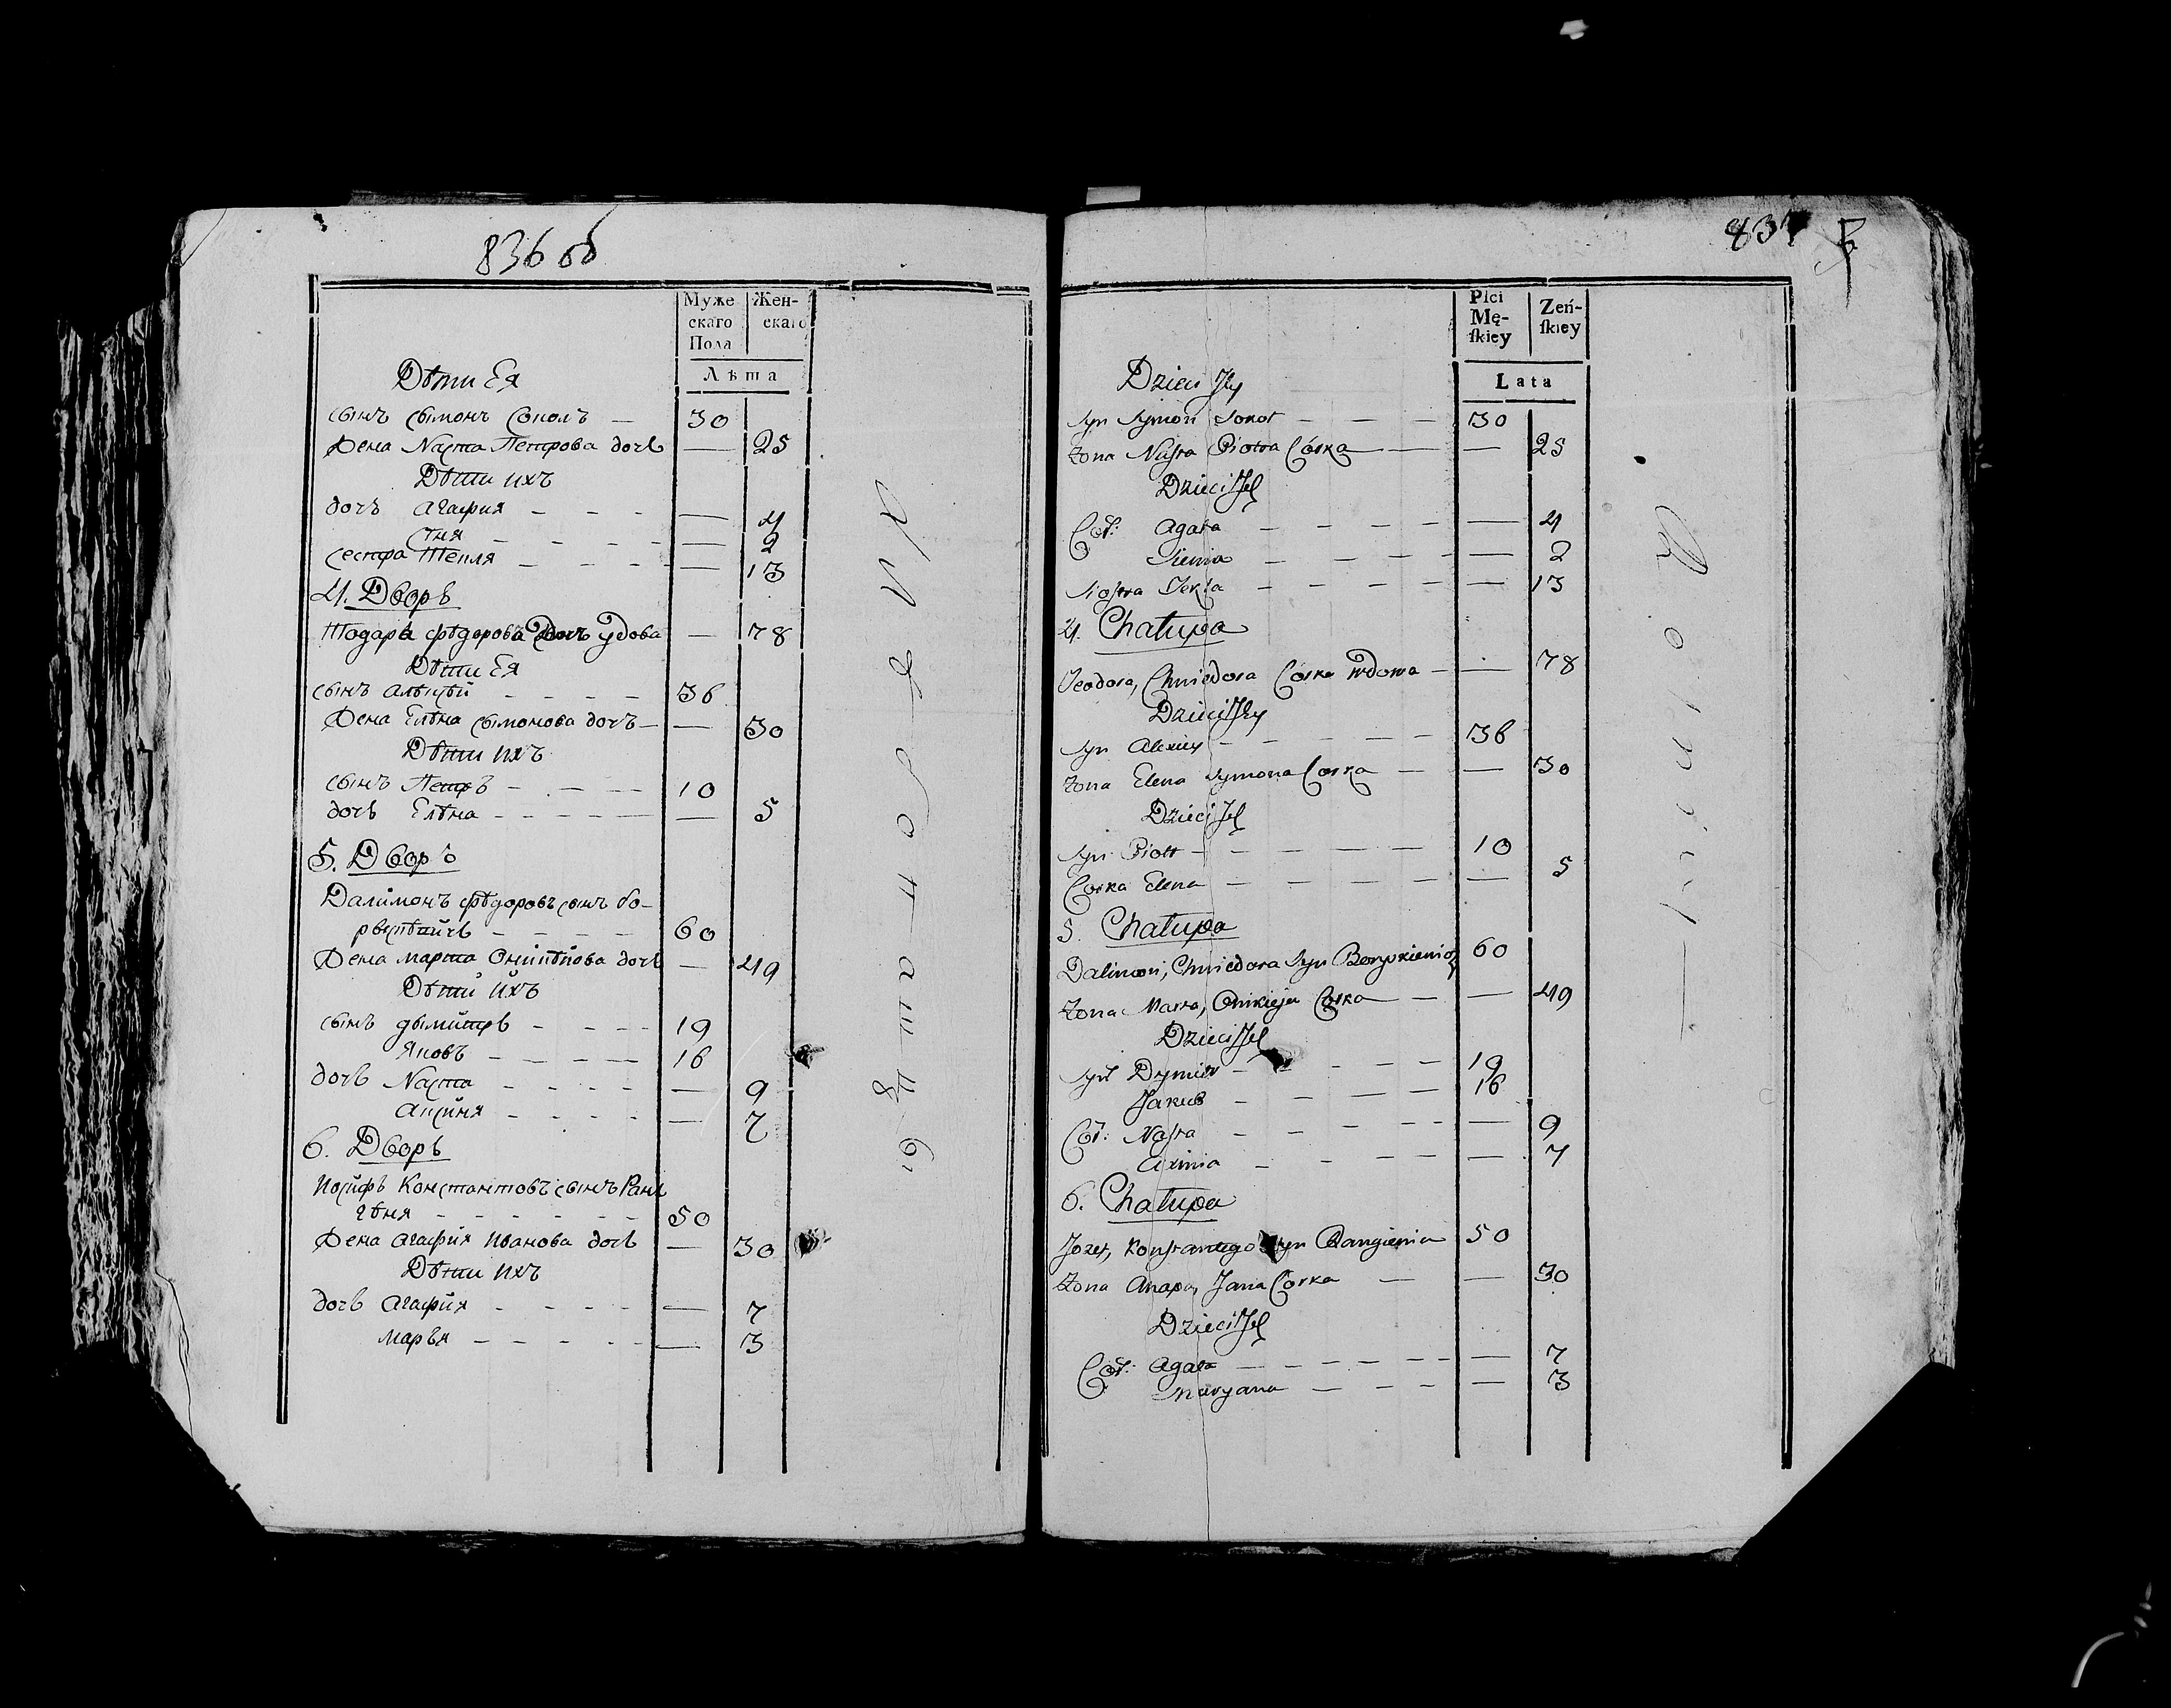 836 об
Муже
скаго
Пола
Жен-
скаго
Лѣта
Дѣти Ея
сынъ Сымонъ Соколъ — 30
Жена Наста Петрова дочь — 25
Дѣти ихъ
дочь Агафия - - - — 4
- - - - — 2
сестра Текля - - - - — 13
4. Дворъ
Тодара Фѣдорова дочь удова — 78
Дѣти Ея
сынъ Алѣксѣй - - - - 36
Жена Елѣна Сымонова дочь — — 30
Дѣти ихъ
сынъ Петръ - - - - 10
дочь Елѣна - - - - - — 5
5. Дворъ
Далимонъ Фѣдоровъ сынъ Бо-
рысѣвичъ - - - - 60
Жена Марта дочь — 49
Дѣти ихъ
сынъ Дымитръ - - - - 19
Яковъ - - - - - 16
дочь Наста - - - - — 9
Аксиня - - - - — 7
6. Дворъ
Иосифъ Константовъ сынъ Ран
гѣня - - - - - - 50
Жена Агафия Иванова дочь — 30
Дѣти ихъ
дочь Агафия - - - - — 7
Марья - - - - - — 3
837
Płci
Mę-
ſkiey
Zeń-
ſkiey
Lata
Dzieci Jey
Syn Symon Sokoł - - - 30
Zona Nasta Piotra Córka — — 25
Dzieci Ich
Cór: Agata - - - - — 4
- - - - — 2
Siostra Tekla - - - - — 13
4. Chałupa
Teodora, Chwiedora Córka wdowa - — 78
Dzieci Jey
Syn Alexiey - - - - - 36
Zona Elena Symona Corka — — 30
Dzieci Ich
Syn Piotr - - - - - 10
Corka Elena - - - - — 5
5. Chałupa
Dalimon, Chwiedora Syn 60
Zona Marta, Corka — — 49
Dzieci Ich
Syn Dymitr - - - - 19
Jakub - - - - 16
Cór: Nasta - - - - — 9
Axinia - - - - — 7
6. Chałupa
Jozef, Konstantego Syn Rangienia 50
Zona Agapa, Jana Corka — — 30
Dzieci Ich
Cór: Agata - - - - - — 7
Maryana - - - - — 3